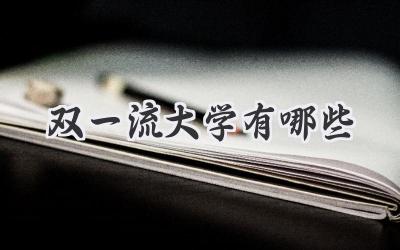 双一流大学有哪些